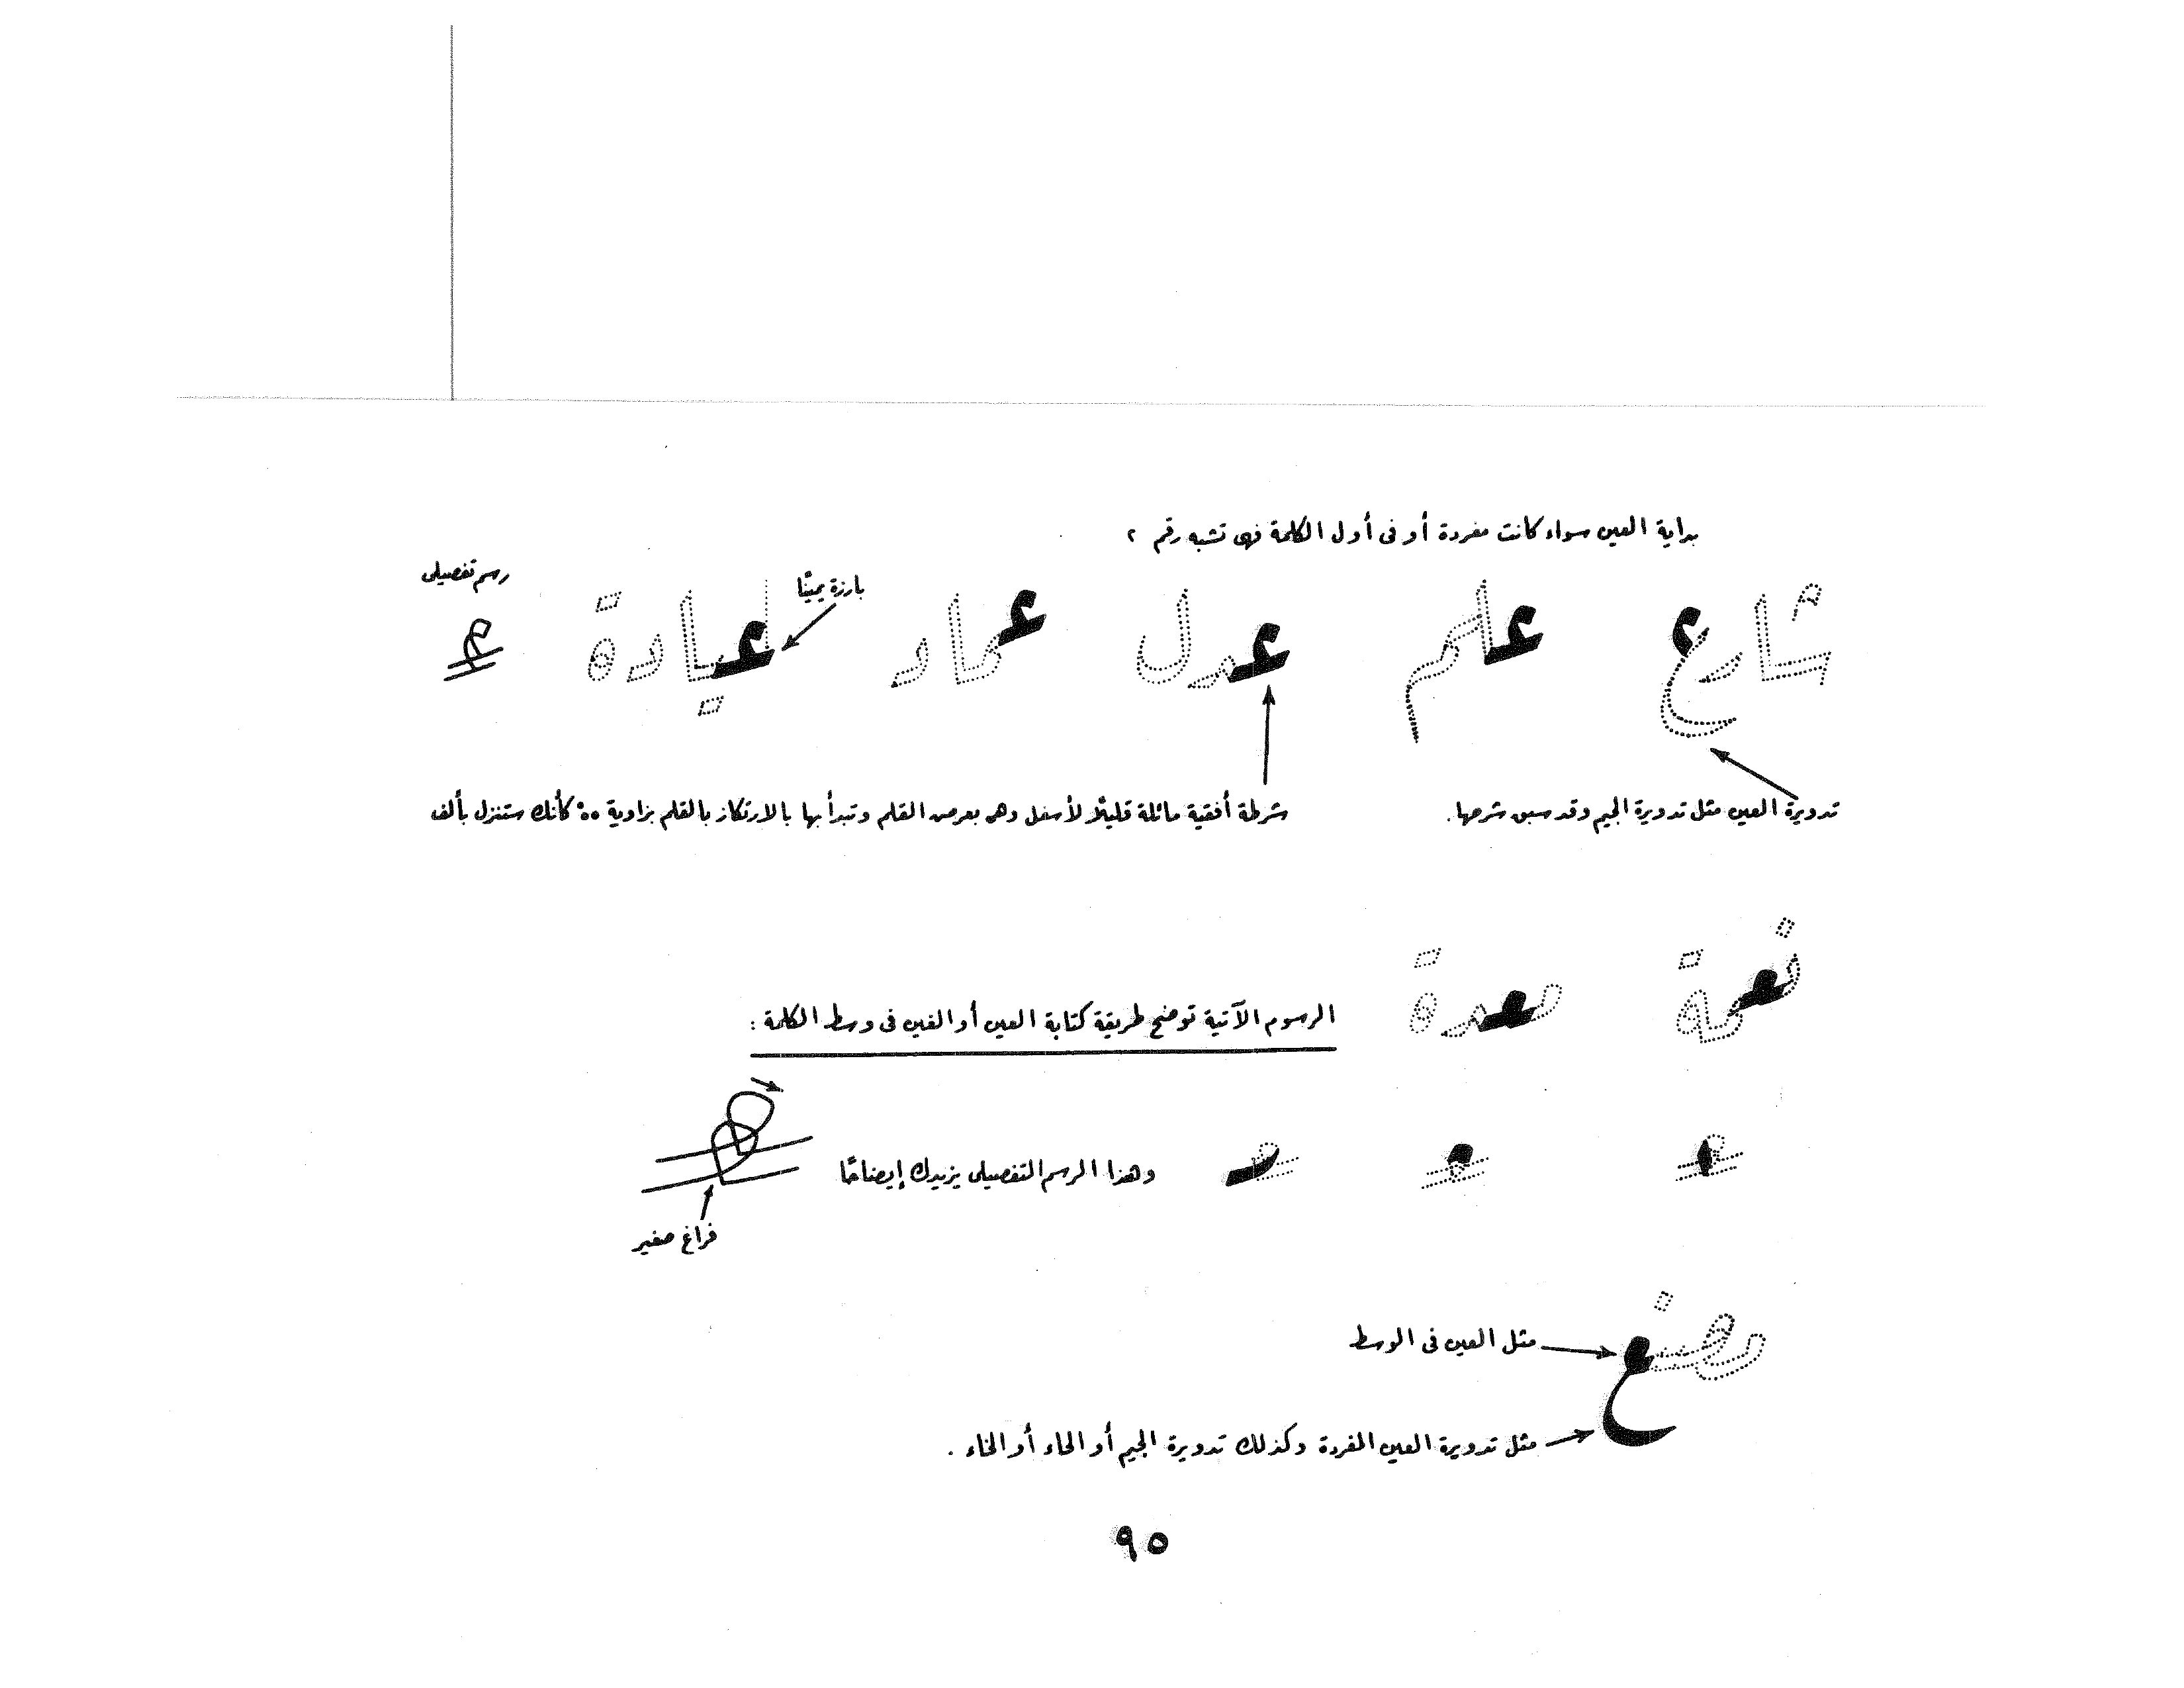 بداية العين سواء كانت مفردة أو فى أول الكلمة فهى تشبه رقم ٢
رسم تفصيلى
بارزة يمينًا
شارع علم عدل عماد عيادة ء
تدويرة العين مثل تدويرة الجيم وقد سبق شرحها .
شرطة أفقية مائلة قليلًا لأسفل وهى بعرض القلم وتبدأ بها بالارتكاز بالقلم بزاوية ٥٥ كأنك ستنزل بألف
نعمة معدة
الرسوم الآتية توضح طريقة كتابة العين أو الغين فى وسط الكلمة :
وهذا الرسم التفصيلى يزيدك إيضاحًا
فراغ صغير
مثل العين فى الوسط
مثل تدويرة العين المفردة وكذلك تدويرة الجيم أو الحاء أو الخاء .
٩٥